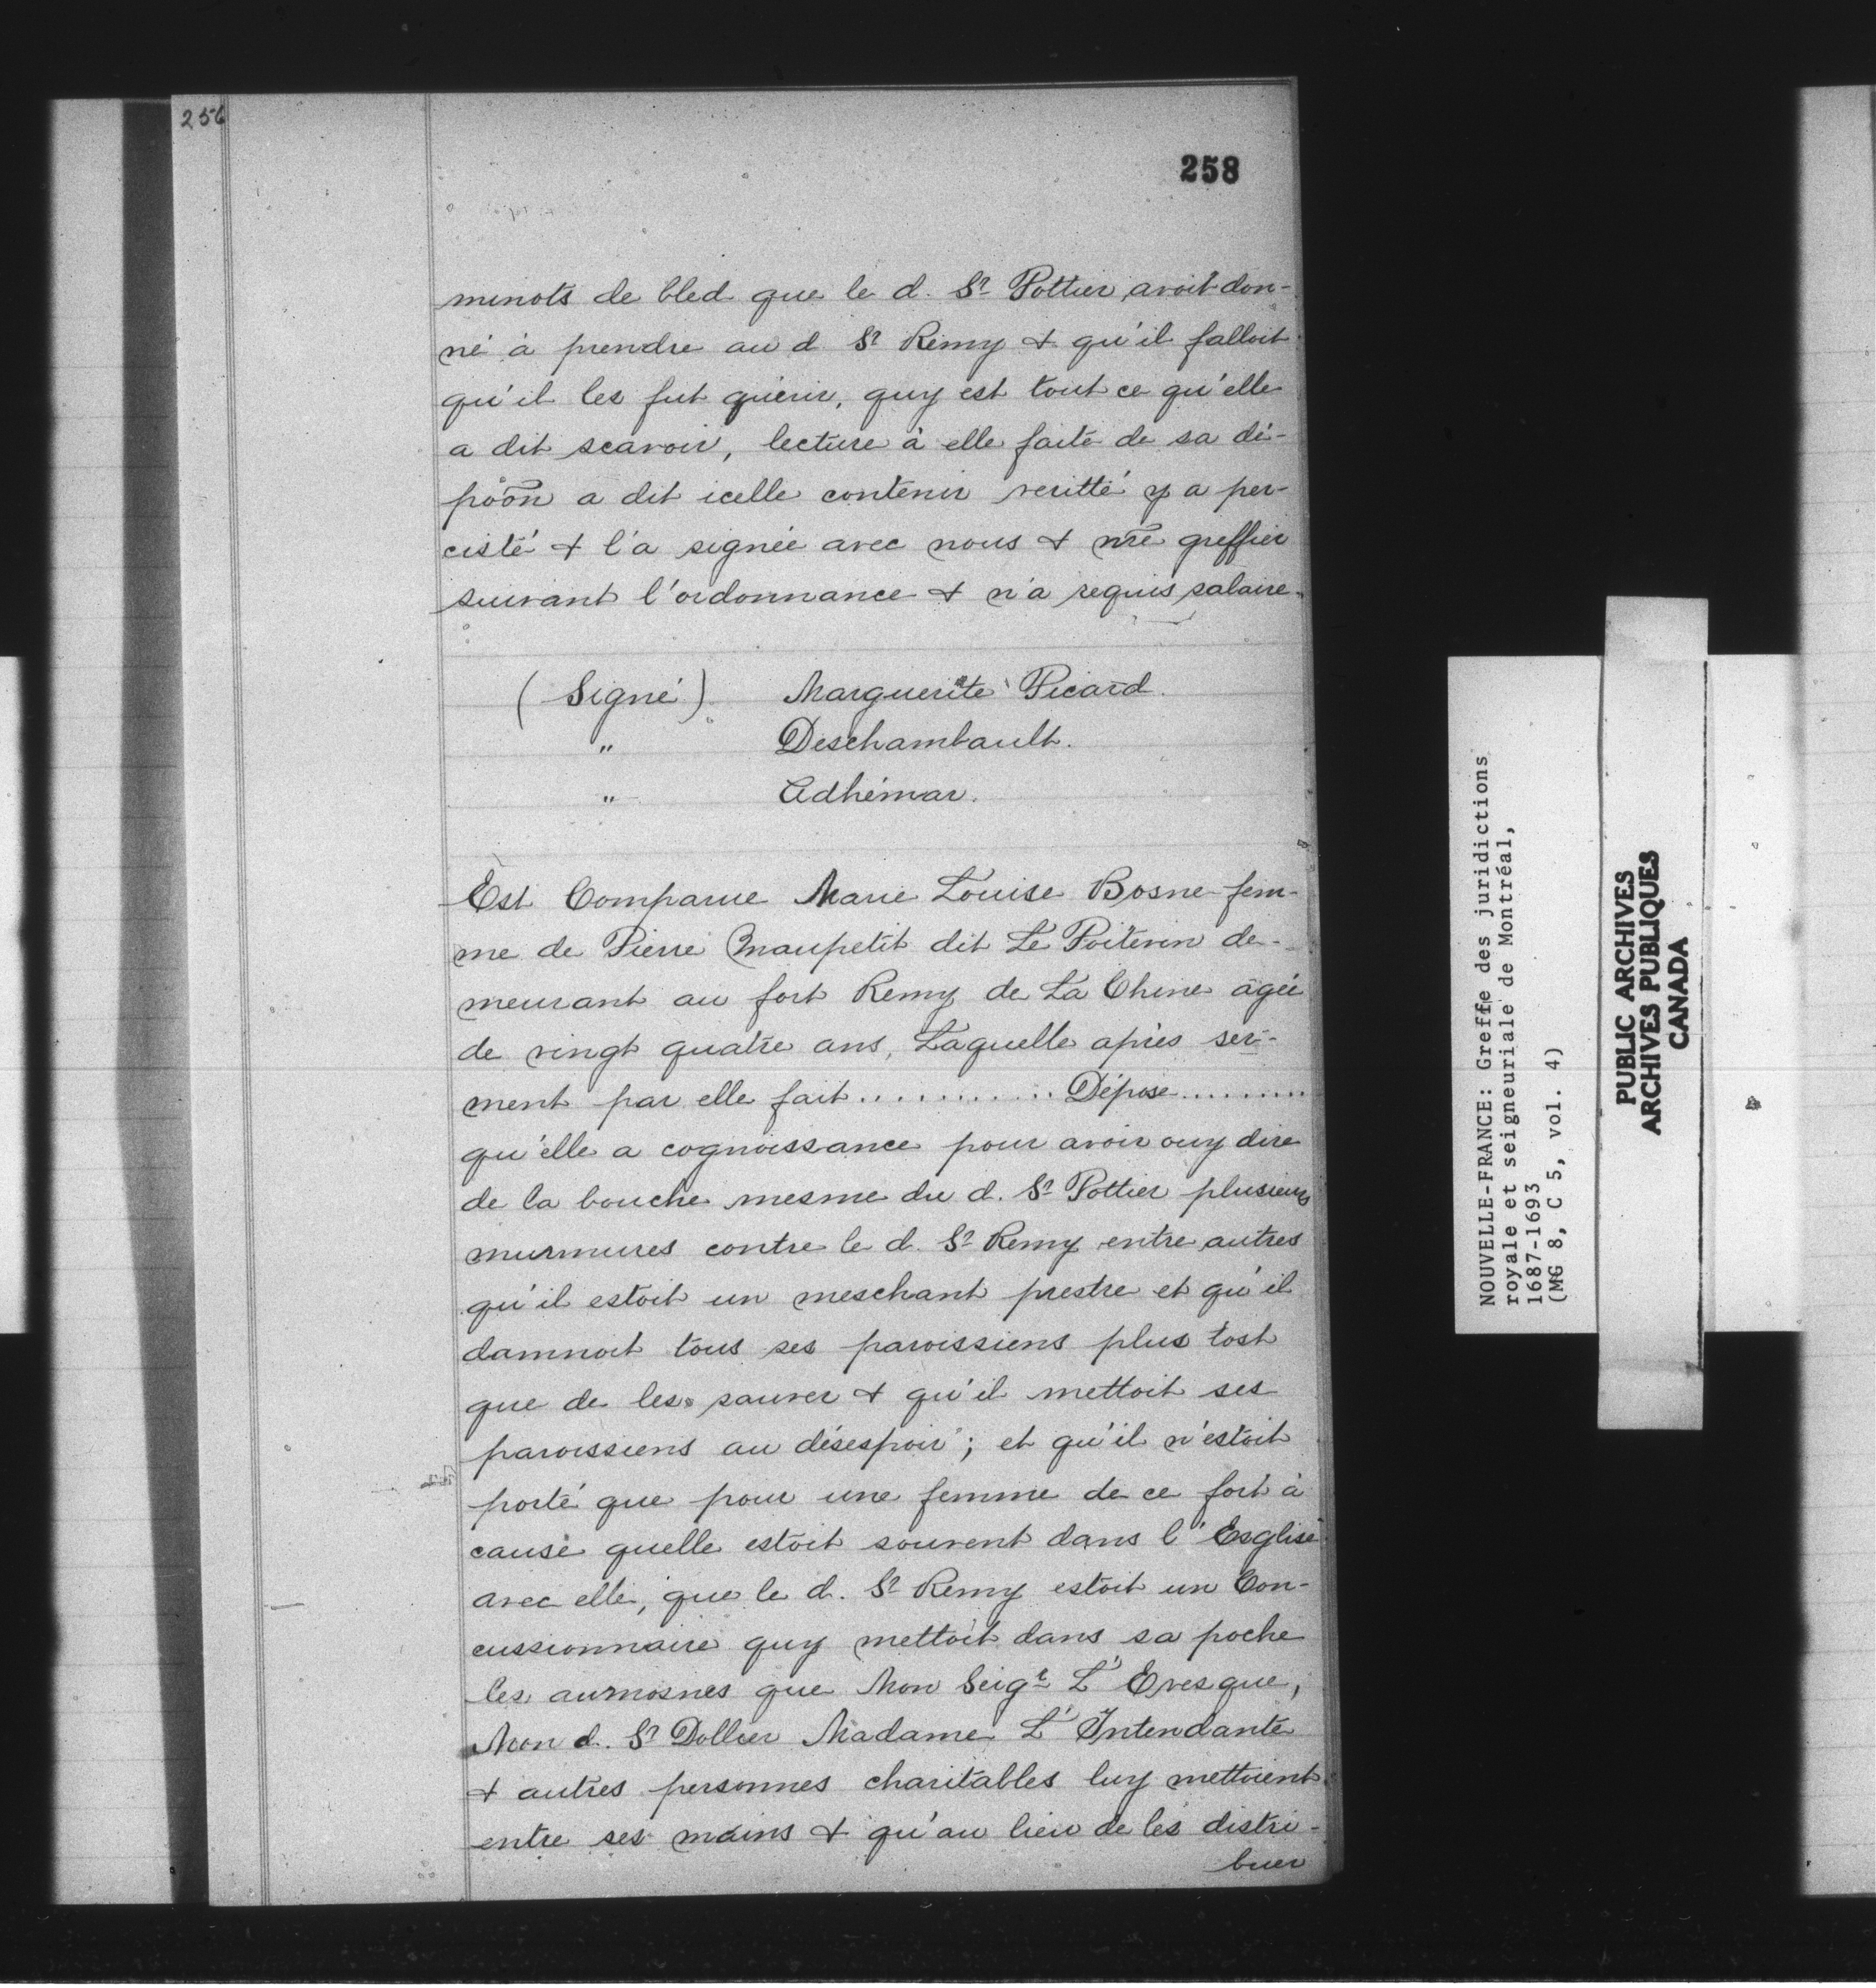 256
258
minots de bled que le d. Sr Pottier avoit don-
né à prendre au d Sr Remy & qu'il falloit
qu'il les fut quérir, quy est tout ce qu'elle
a dit scavoir, lecture à elle faite de sa dé-
põõn a dit icelle contenir veritté y a per-
cisté & l'a signée avec nous & nr̃e greffier
suivant l'ordonnance & n'a requis salaire.
(Signé) Marguerite Picard.
" Deschambault.
" Adhémar.
Est Comparue Marie Louise Bosne fem-
me de Pierre Maupetit dit Le Poitevin de-
meurant au fort Remy de La Chine âgée
de vingt quatre ans, Laquelle après ser-
ment par elle fait............Dépose.........
qu'elle a cognoissance pour avoir ouy dire
de la bouche mesme du d. Sr Pottier plusieurs
murmures contre le d. Sr Remy entre autres
qu'il estoit un meschant prestre et qu'il
damnoit tous ses paroissiens plus tost
que de les sauver & qu'il mettoit ses
paroissiens au désespoir; et qu'il n'estoit
porté que pour une femme de ce fort à
cause quelle estoit souvent dans l'Esglise
avec elle, que le d. Sr Remy estoit un Con-
cussionnaire quy mettoit dans sa poche
les aumosnes que Mon Seigr L'Evesque,
Mon d. Sr Dollier Madame L'Intendante
& autres personnes charitables luy mettoient
entre ses mains & qu'au lieu de les distri-
buer
NOUVELLE-FRANCE: Greffe des juridictions
royale et seigneuriale de Montréal,
1687-1693
(MG 8, C 5, vol. 4)
PUBLIC ARCHIVES
ARCHIVES PUBLIQUES
CANADA